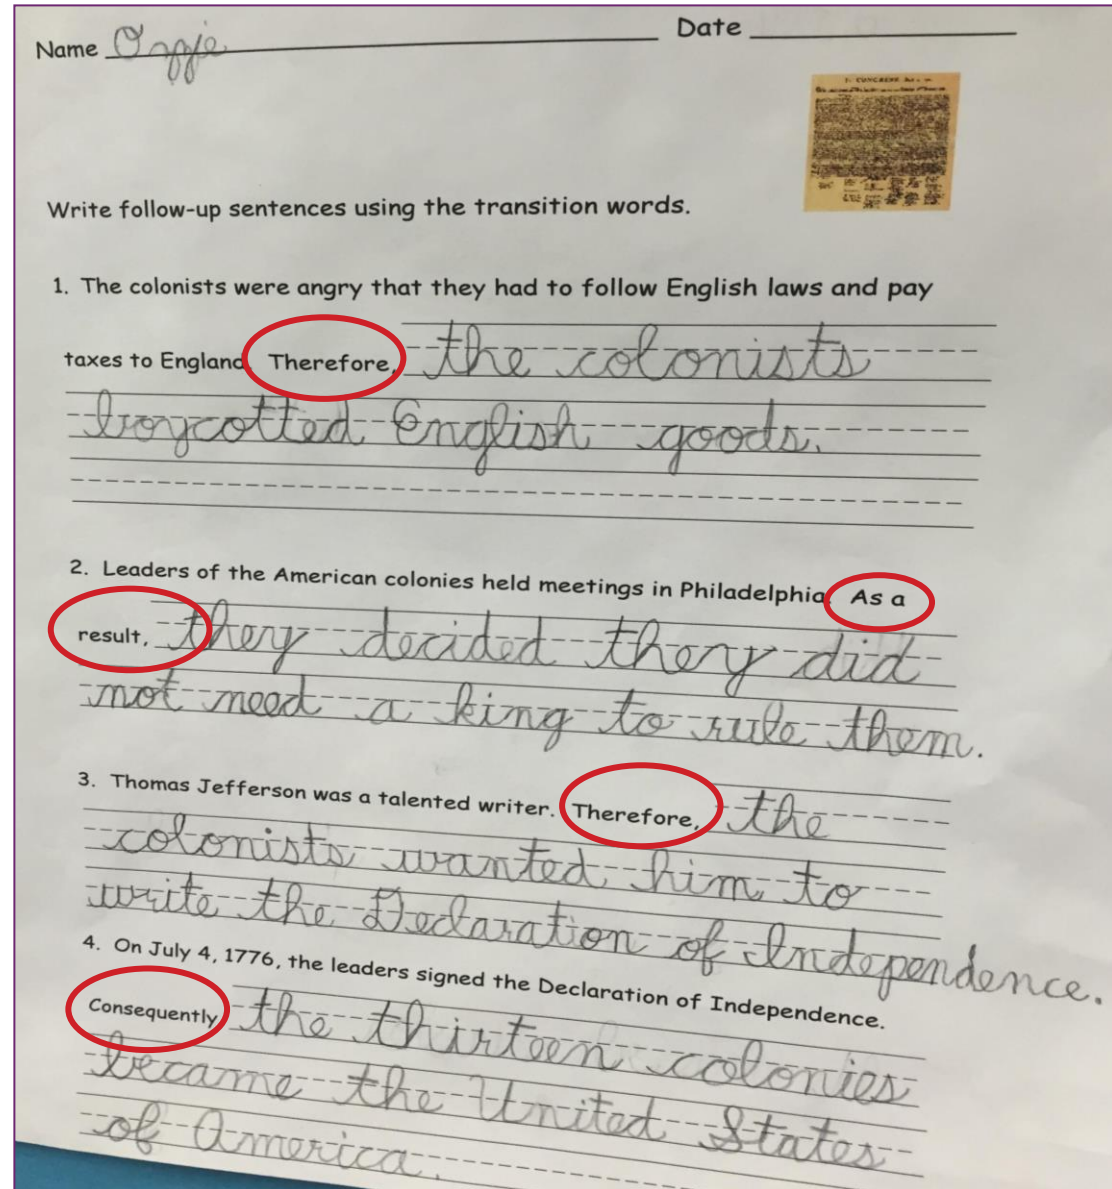 Name Ozzie Date
Write follow-up sentences using the transition words.
1. The colonists were angry that they had to follow English laws and pay
taxes to England. Therefore, the colonists
boycotted English goods.
2. Leaders of the American colonies held meetings in Philadelphia. As a
result, they decided they did
not need a king to rule them.
3. Thomas Jefferson was a talented writer. Therefore, the
colonists wanted him to
write the Declaration of Independence.
4. On July 4, 1776, the leaders signed the Declaration of Independence.
Consequently, the thirteen colonies
became the United States
of America.